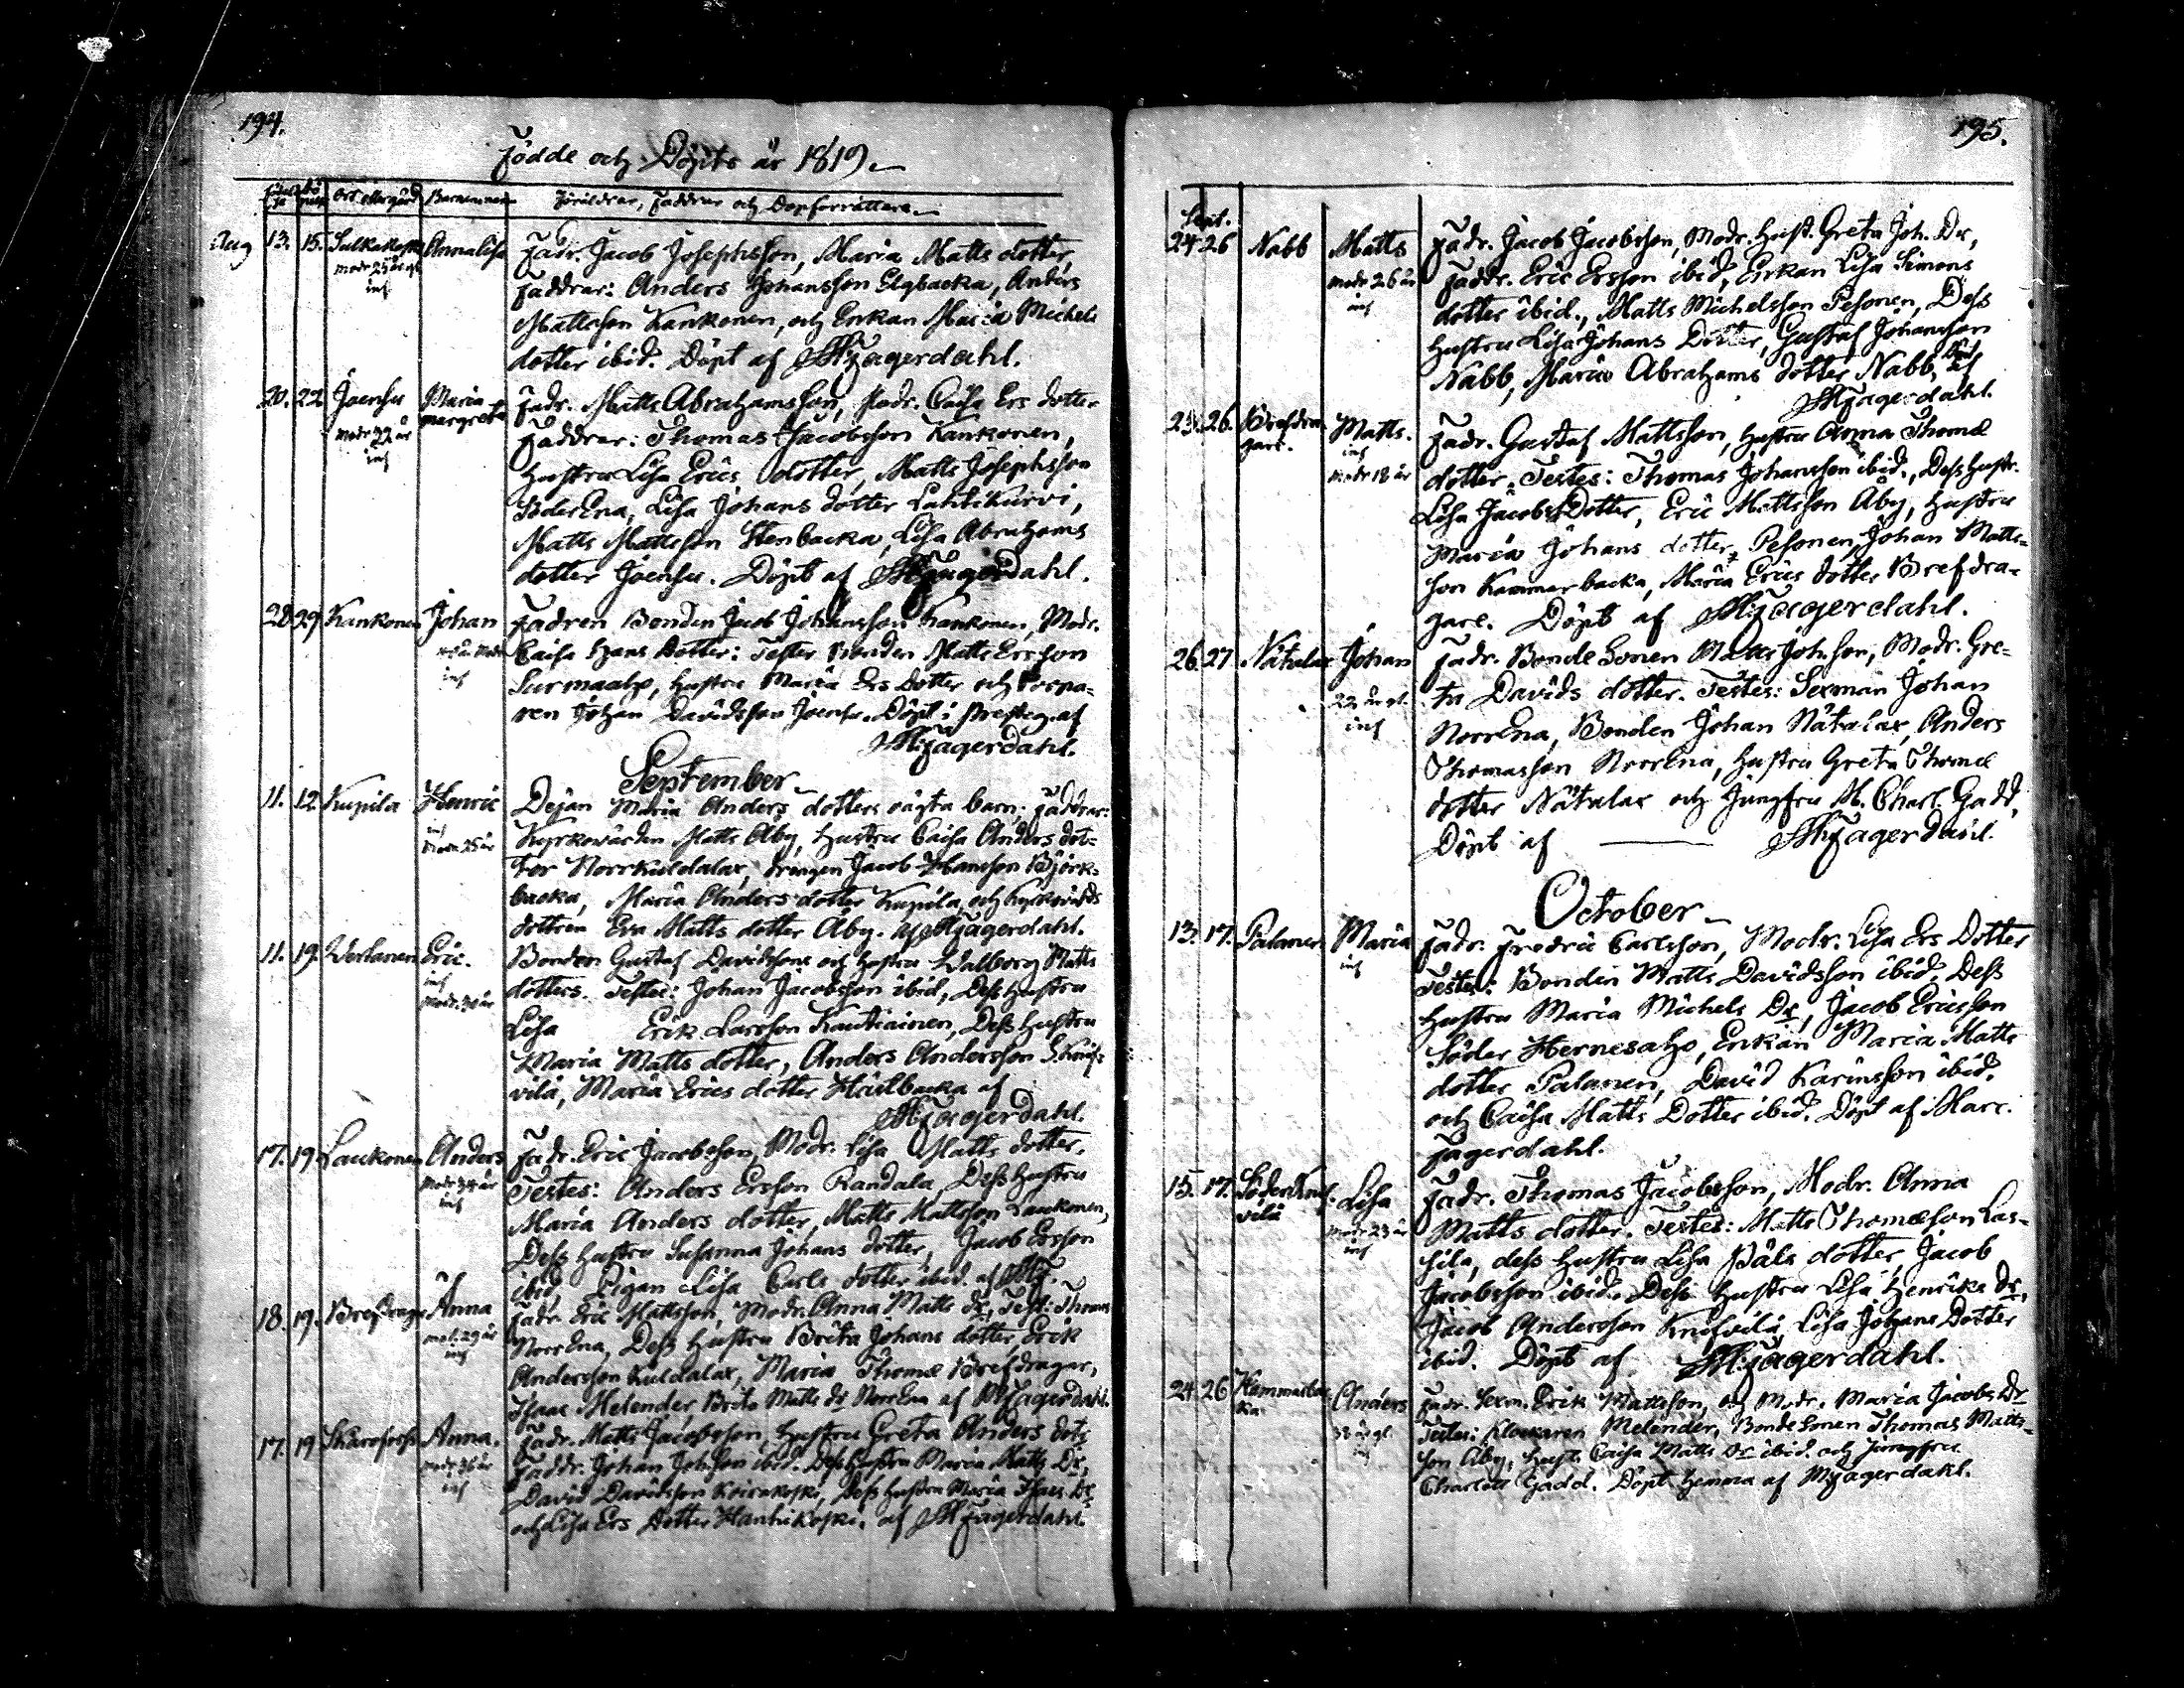 194.
Födde och Döpte år 1819.
Ort eller gård Barnanamn Föräldrar, Faddrar och Dopförrättare
Aug 13. 15. Anna Lisa Fadr. Jacob Josephsson, Maria Matts dotter,
modr 25 år gl. Faddrar: Anders Johansson Elgbacka, Anders
inf Mattsson Kankonen, och Enkan Maria Michels
dotter ibid. Döpt af MFagerdahl.
20. 22 Joensu Maria Fadr. Matts Abrahamsson, Modr. Caisa Ers dotter
margreta Faddrar: Thomas Jacobsson Kankonen,
inf Hustru Lisa Erics dotter, Matts Josephsson
SöderEna, Lisa Johans dotter Lahtikurvi,
Matts Mattsson Stenbacka, Lisa Abrahams
dotter Joensu. Döpt af MFagerdahl.
28 29 Kankonen Johan Fadren Bonden Jacob Johansson Kankonen, Modr.
Caisa Hans dotter: Testes Bonden Matts Ersson
inf Surmaaho, Hustru Maria Ers Dotter och
Johan Davidsson Joensu. Döpt i af
MFagerdahl.
September
11. 12. Kupila Henric Pejan Maria Anders dotters oägta barn; faddrar:
inf Kyrkowärden Matts Åby, Hustru Caisa Anders dot-
Modr. 25 år ter Norrkuldalax, Drengen Jacob Hansson Björk-
backa, Maria Anders dotter Kupila, och Kyrkowärds
dottren Eva Matts dotter Åby. af MFagerdahl.
11. 19. Eric. Bonden Gustaf Davidssons och Hustru Walborg Matts
inf dotters. Testes: Johan Jacobsson ibid, Dess Hustru
Lisa Erik Larsson Kautiainen, Dess Hustru
Maria Matts dotter, Anders Andersson S. Knif-
vilä, Maria Erics dotter af
MFagerdahl.
17. 19 Laukonen Anders Fadr. Eric Jacobsson, Modr. Lisa Matts dotter,
Modr 34 år Testes: Anders Ersson Randala, Dess Hustru
inf Maria Anders dotter, Matts Mattsson Laukonen,
Dess Hustru Susanna Johans dotter, Jacob Ersson
ibid, Pigan Lisa Carls dotter ibid. af MF.
18. 19. Brefdrag. Anna Fadr. Eric Mattsson, Modr. Anna Matts dr, Test: Thomas
mod. 29 år NorrEna, Dess Hustru Brita Johans dotter, Erik
inf Andersson Kuldalax, Maria Thomæ Brefdragar,
Isaac Melender, Brita Matts dr NorrEna af MFagerdahl.
17. 19 Anna. Fadr. Matts Jacobsson, Hustru Greta Anders dot.
modr 36 år Faddr. Johan Johsson ibid. Dess Hustru Maria Matts Dr,
inf David Davidsson Koirakoski, Dess Hustru Maria Isacs Dr
och Lisa Ers Dotter Hanhikoski. af MFagerdahl.
195.
Sept.
24 26 Nabb Matts Fadr. Jacob Jacobsson, Modr. Hust. Greta Joh. Dr,
modr 26 år Faddr. Eric Ersson ibid, Enkan Lisa Simons
inf dotter ibid., Matts Michelsson Pesonen, Dess
Hustru Lisa Johans Dotter, Gustaf Johansson
Nabb, Maria Abrahams dotter Nabb, Döpt af
MFagerdahl.
23. 26. Brefdra- Matts. Fadr. Gustaf Mattsson, Hustru Anna Thomæ
gare. inf dotter. Testes: Thomas Johansson ibid., Dess Hustr.
modr 18 år Lisa Jacobs Dotter, Eric Mattsson Åby, Hustru
Maria Johans dotter, Pesonen, Johan Matts-
son Kammarbacka, Maria Erics dotter Brefdra-
gare. Döpt af MFagerdahl.
26. 27 Nätulax Johan Fadr. Bonde Sonen Matts Johsson, Modr. Gre-
22 år gl. ta Davids dotter. Testes: Sexman Johan
inf NorrEna, Bonden Johan Nätulax, Anders
Thomasson NorrEna, Hustru Greta Thomæ
dotter Nätulax och Jungfru M. Charl. Gadd,
Döpt af MFagerdahl.
October
13. 17. Palanen Maria Fadr. Fredric Carlsson, Modr. Lisa Ers Dotter
inf Testes: Bonden Matts Davidsson ibid. Dess
Hustru Maria Michels Dr, Jacob Ericsson
Söder Hernesaho, Enkan Maria Matts
dotter Palanen, David Karinsson ibid.
och Caisa Matts Dotter ibid. Döpt af Marc.
Fagerdahl.
15. 17. SöderKnif- Lisa Fadr. Thomas Jacobsson, Modr. Anna
vilä modr 23 år Matts dotter. Testes: Matts Thomasson Las-
inf sila, dess Hustru Lisa Påls dotter, Jacob
Jacobsson ibid. Dess Hustru Lisa Henriks dr,
Jacob Andersson Knifvilä, Lisa Johans Dotter
ibid. Döpt af MFagerdahl.
24. 26 Hammarbac- Anders Fadr. Sexm. Erik Mattsson, och Modr. Maria Jacobs Dr
ka. Testes: Klockaren Melender, Bonde Sonen Thomas Matts-
inf son Åby, Hust. Caisa Matts Dr ibid. och Jungfru
Charlott Gadd. Döpt hemma af MFagerdahl.